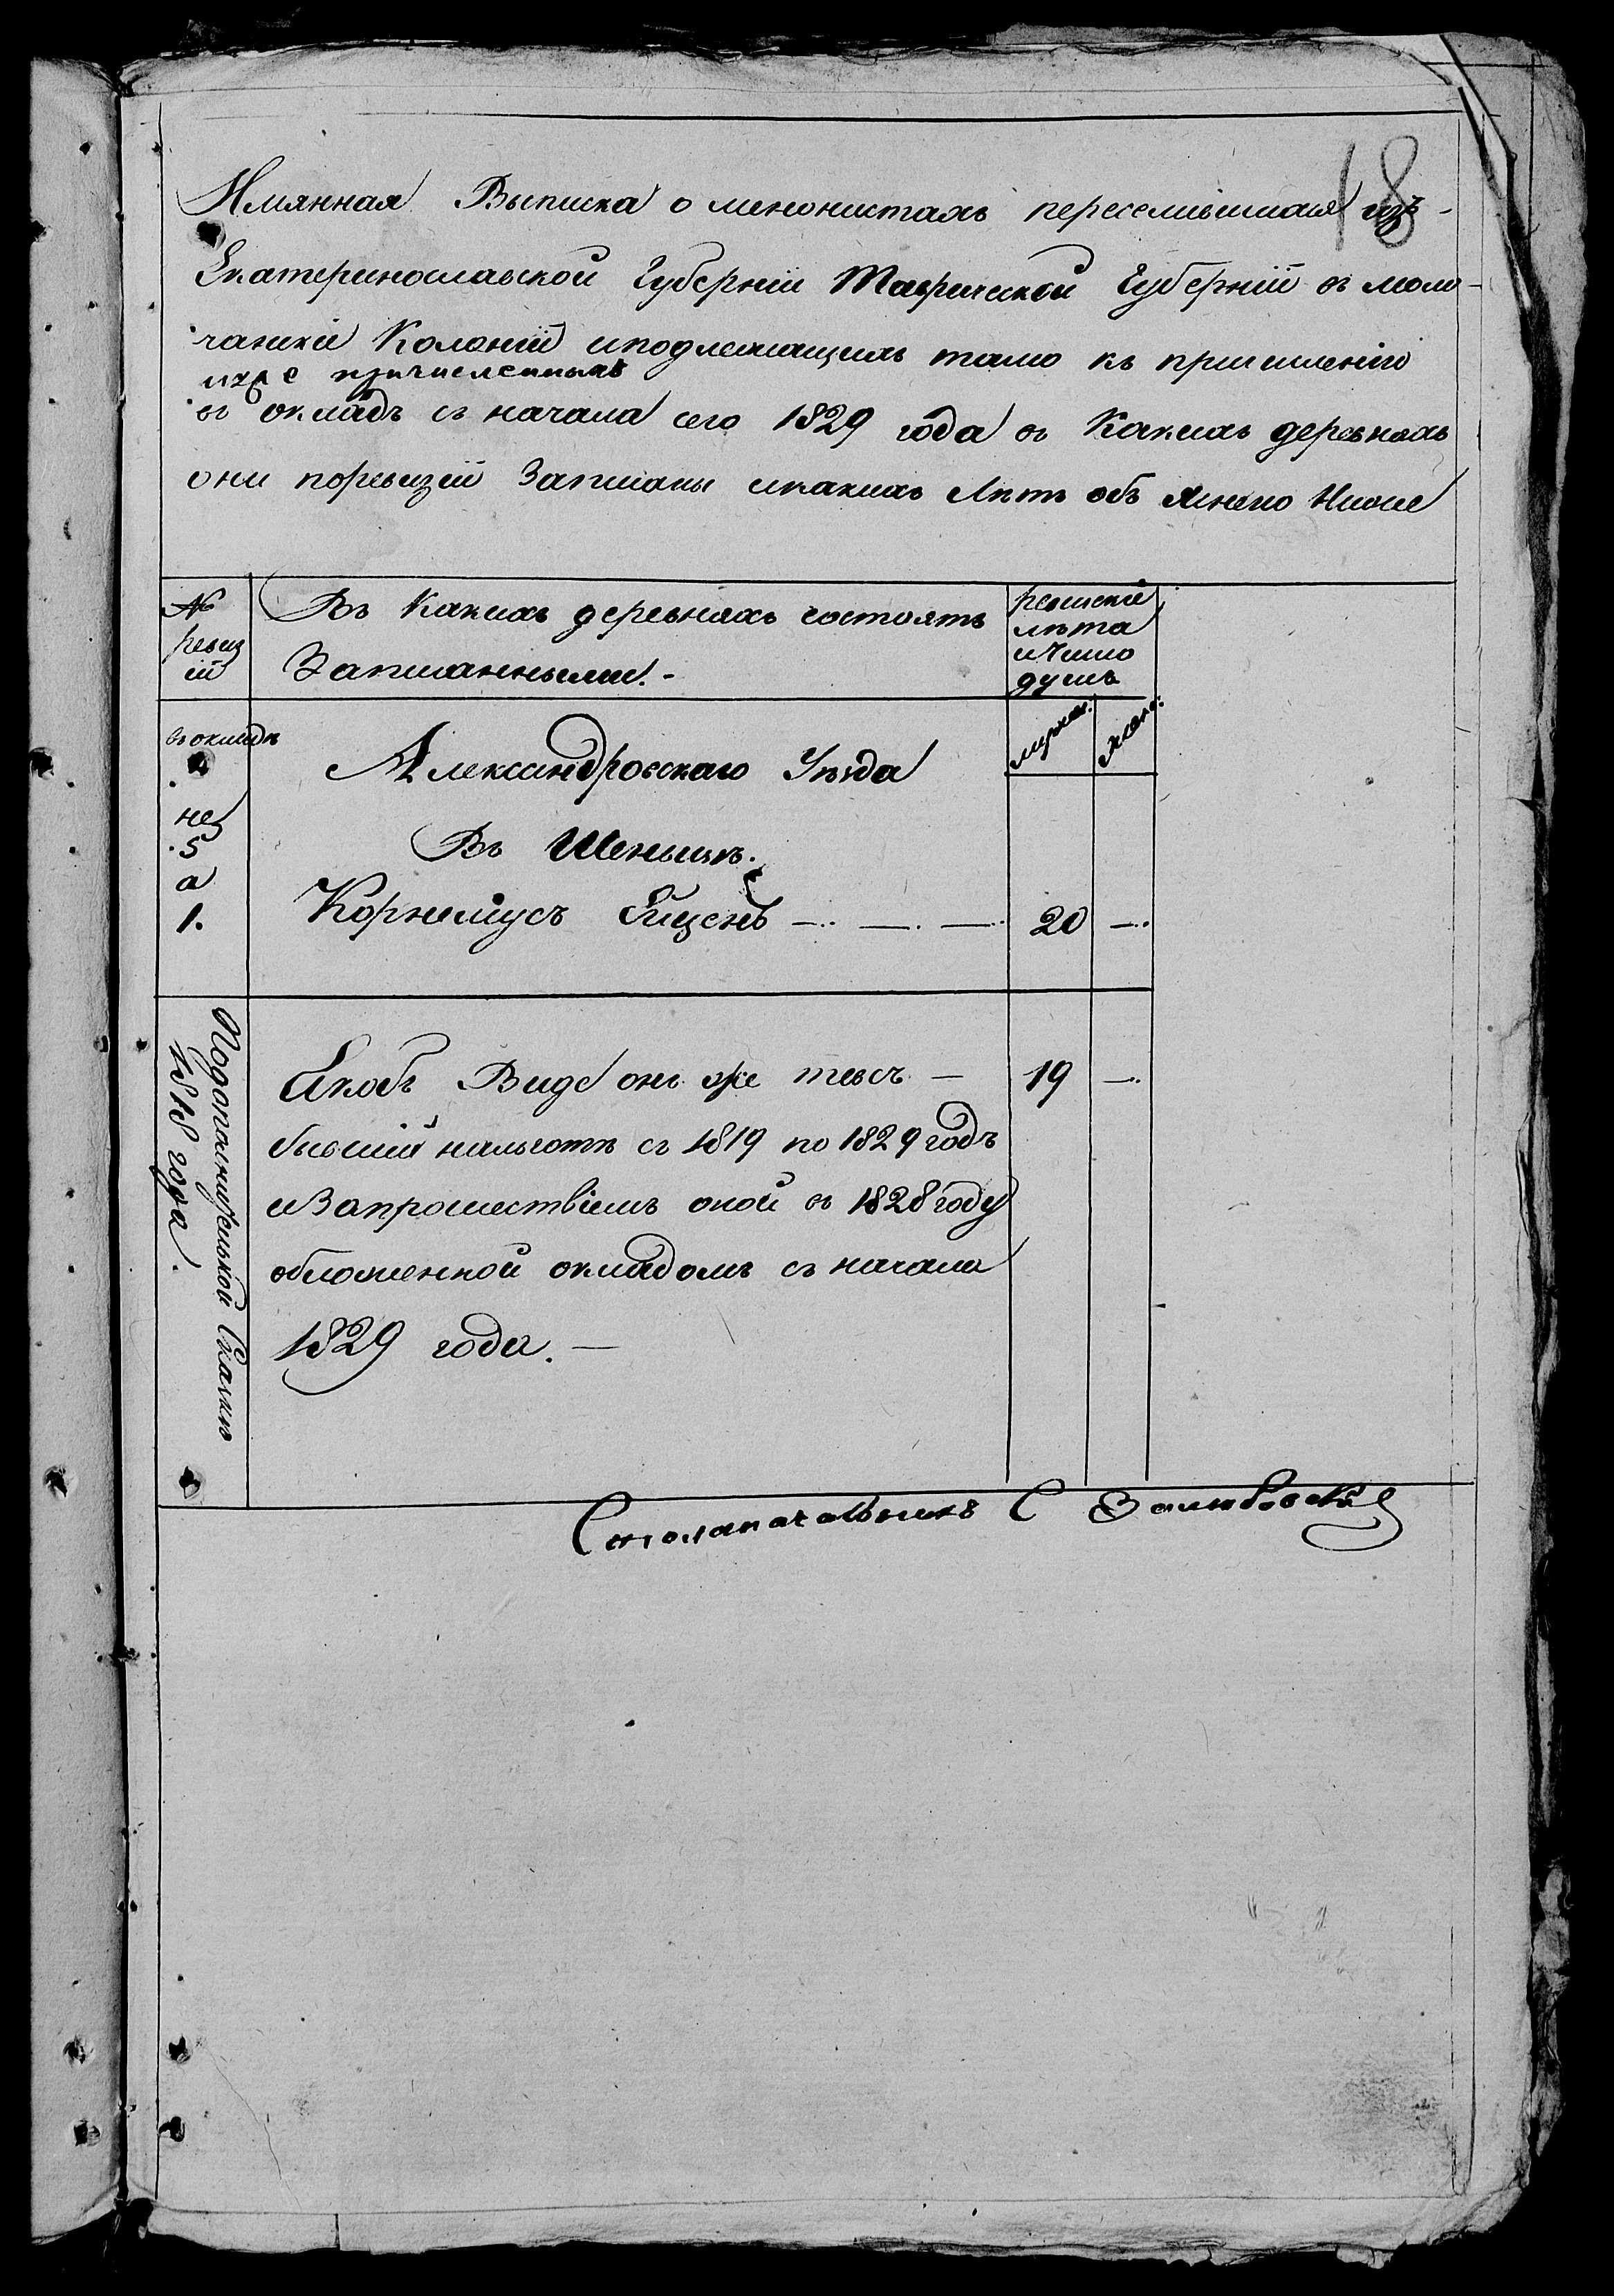 18
Имянная Выписка о менонистахъ переселившихся изъ
Екатеринославской Губернїи Таврической Губернїи въ моло-
чанскїе Колонїи иподлежащихъ тамо къ причисленїю
ихъ с причисленныхъ
въ окладъ съ начала сего 1829 года въ Какихъ деревняхъ
они поревизїи Записаны икакихъ Лѣтъ объ ясняно Ниже
№ ревиз їй
Въ Какихъ деревняхъ состоятъ
Записанными. -
ревискїе
лѣта
и Число
душъ
мужес: женс:
въ окладѣ
Александровскаго Уѣзда
не
5
Въ Шеньвизѣ.
а
1. Корнелїусъ Епценъ —. —. —. 20 —.
Подополнительной Сказкѣ
1818 года.
Якобъ Виде онъ же тевсъ — 19 —.
бывшїй нальготѣ съ 1819 по 1829 годъ
иЗапрошествїемъ оной въ 1828 году
обложенной окладомъ съ начала
1829 года. —
Столоначальникъ С